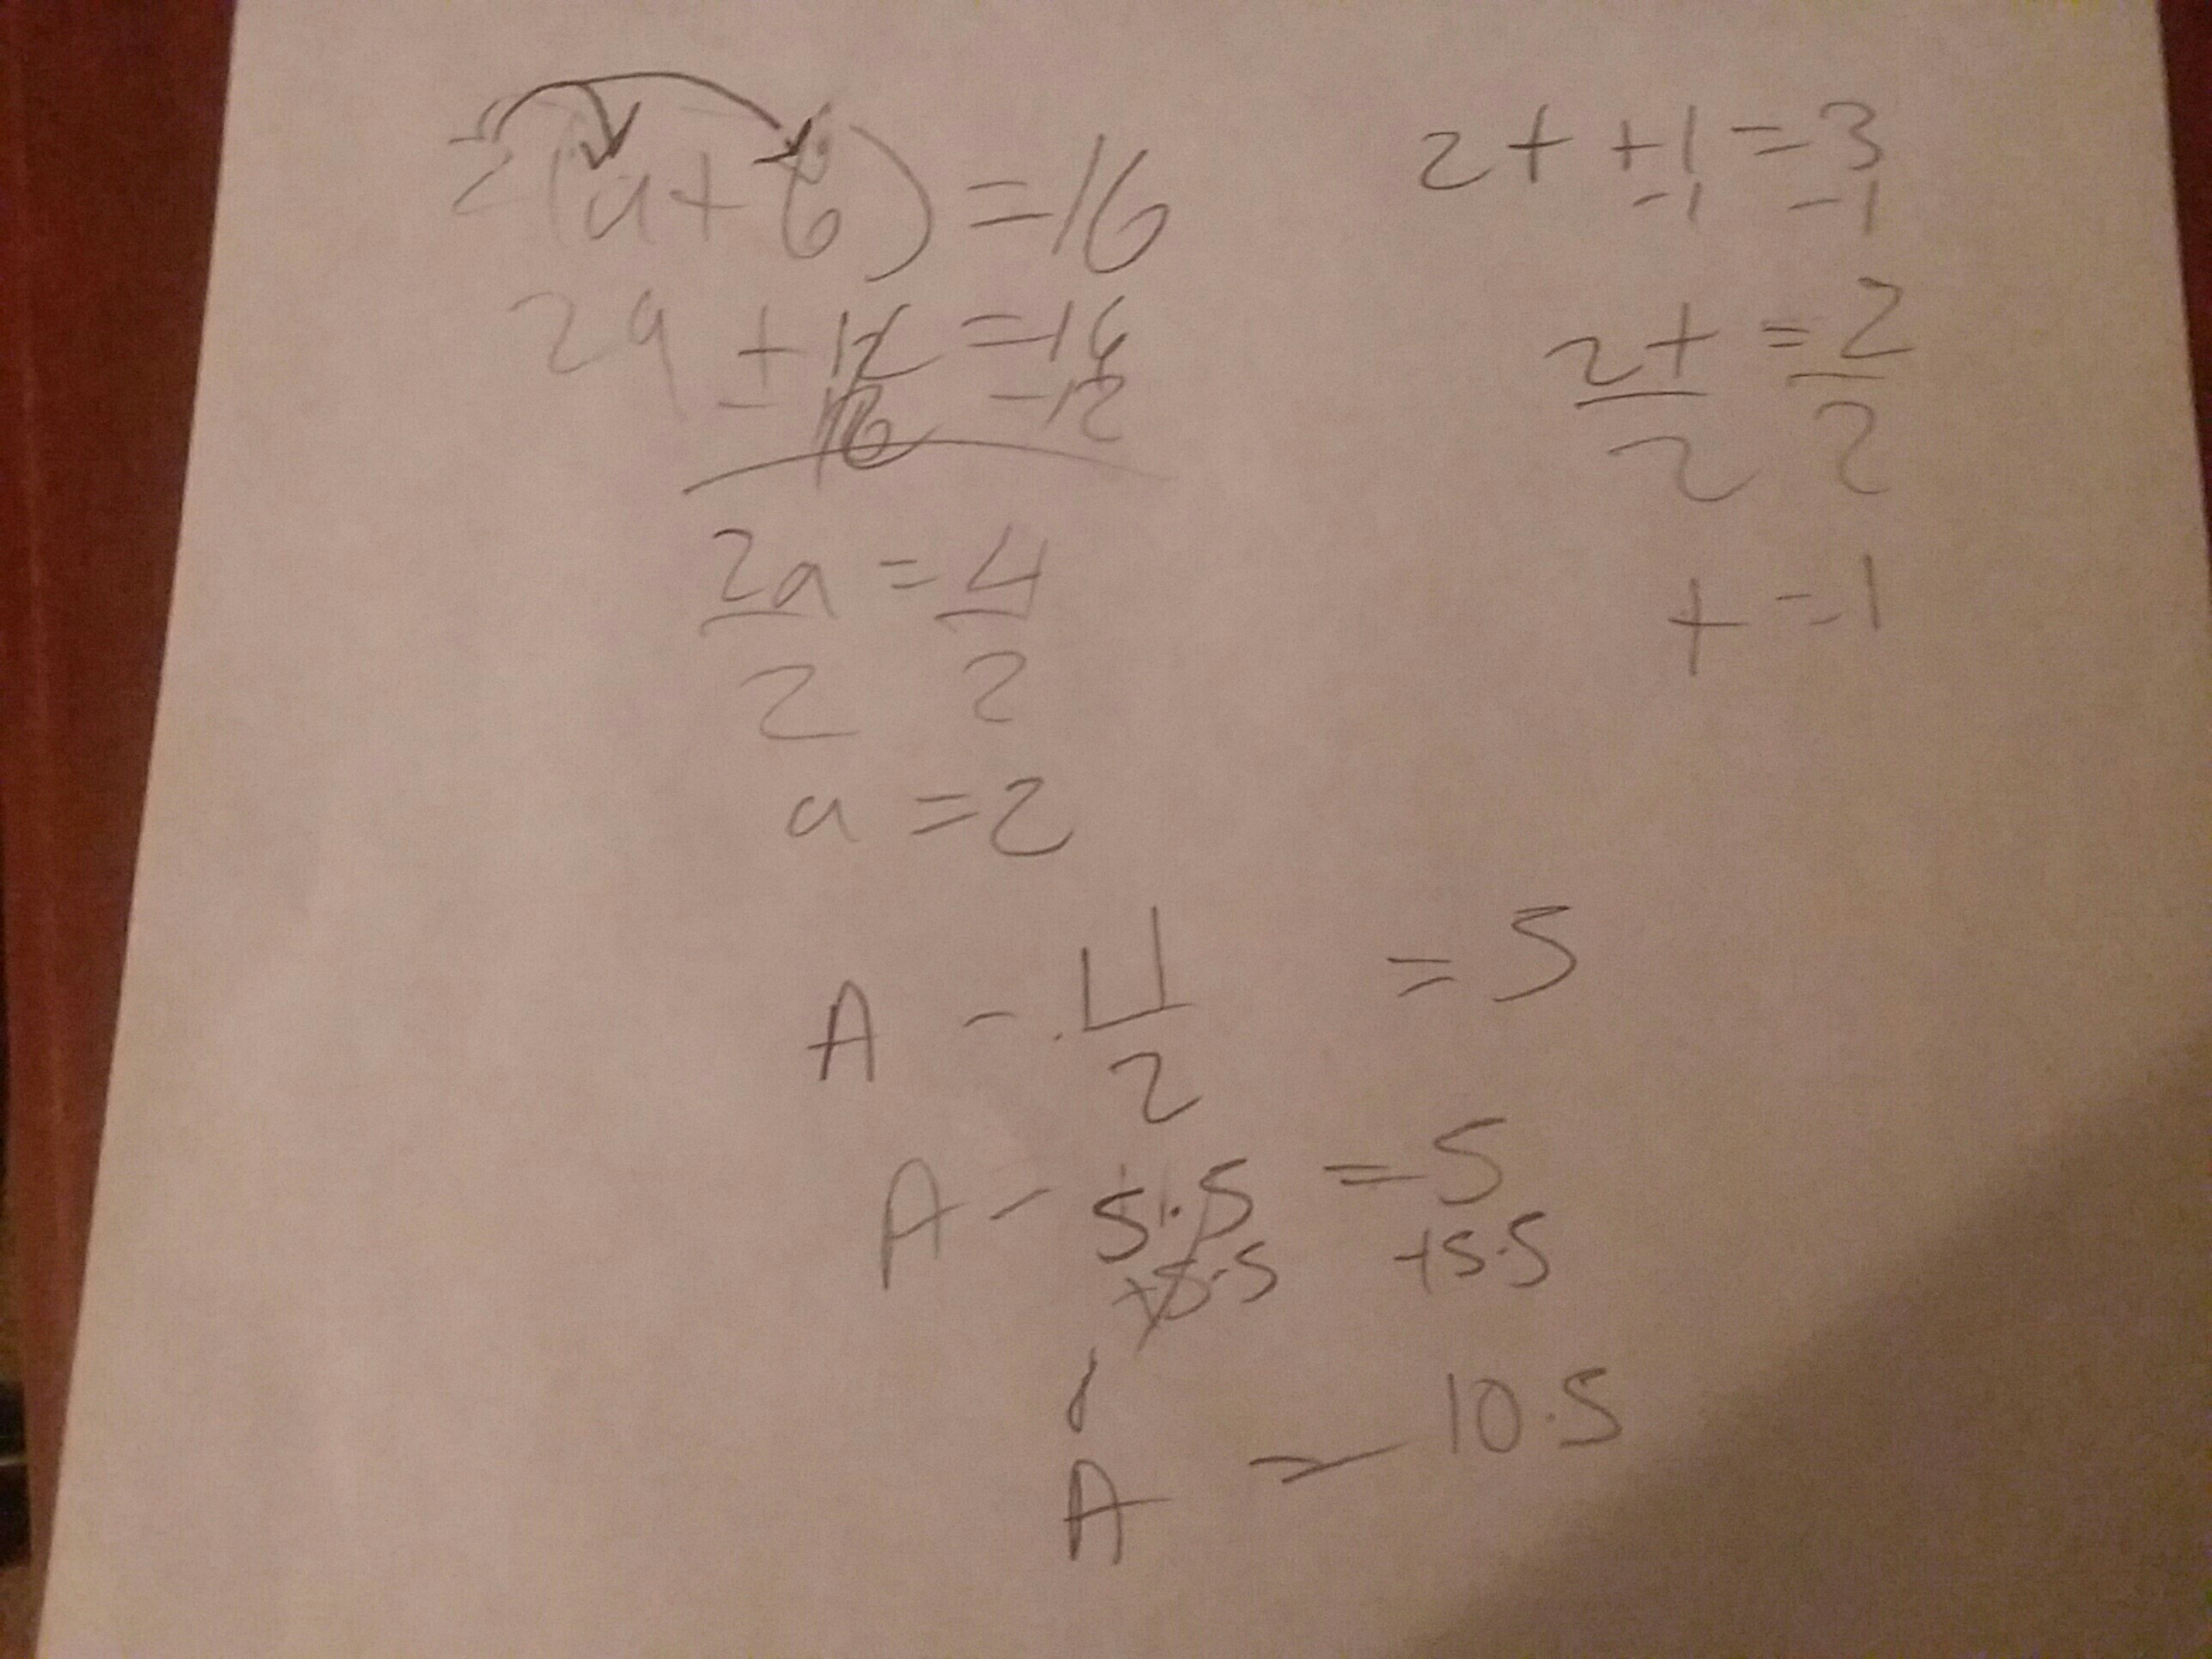 2(a+6)=16
2a + 12 = 16
- 12 -12
2a = 4
2 2
a = 2
2t +1 = 3
-1 -1
2t = 2
2 2
t = 1
A - 11 = 5
2
A - 5.5 = 5
+5.5 +5.5
A = 10.5